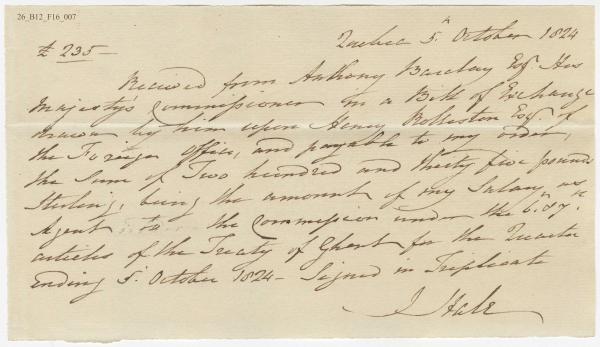 26_B12_F16_007
Quebec 5th October 1824
£ 235 —
Received from Anthony Barclay Esqr. His
Majesty's Commissioner in a Bill of Exchange
drawn by him upon Henry Rolleston Esqr. of
the Foreign Office, and payable to my order,
the Sum of Two hundred and thirty five pounds
Sterling, being the amount of my Salary as
Agent to the Commission under the 6. & 7th.
articles of the Treaty of Ghent for the Quarter
ending 5th October 1824 — Signed in Triplicate
J Hale